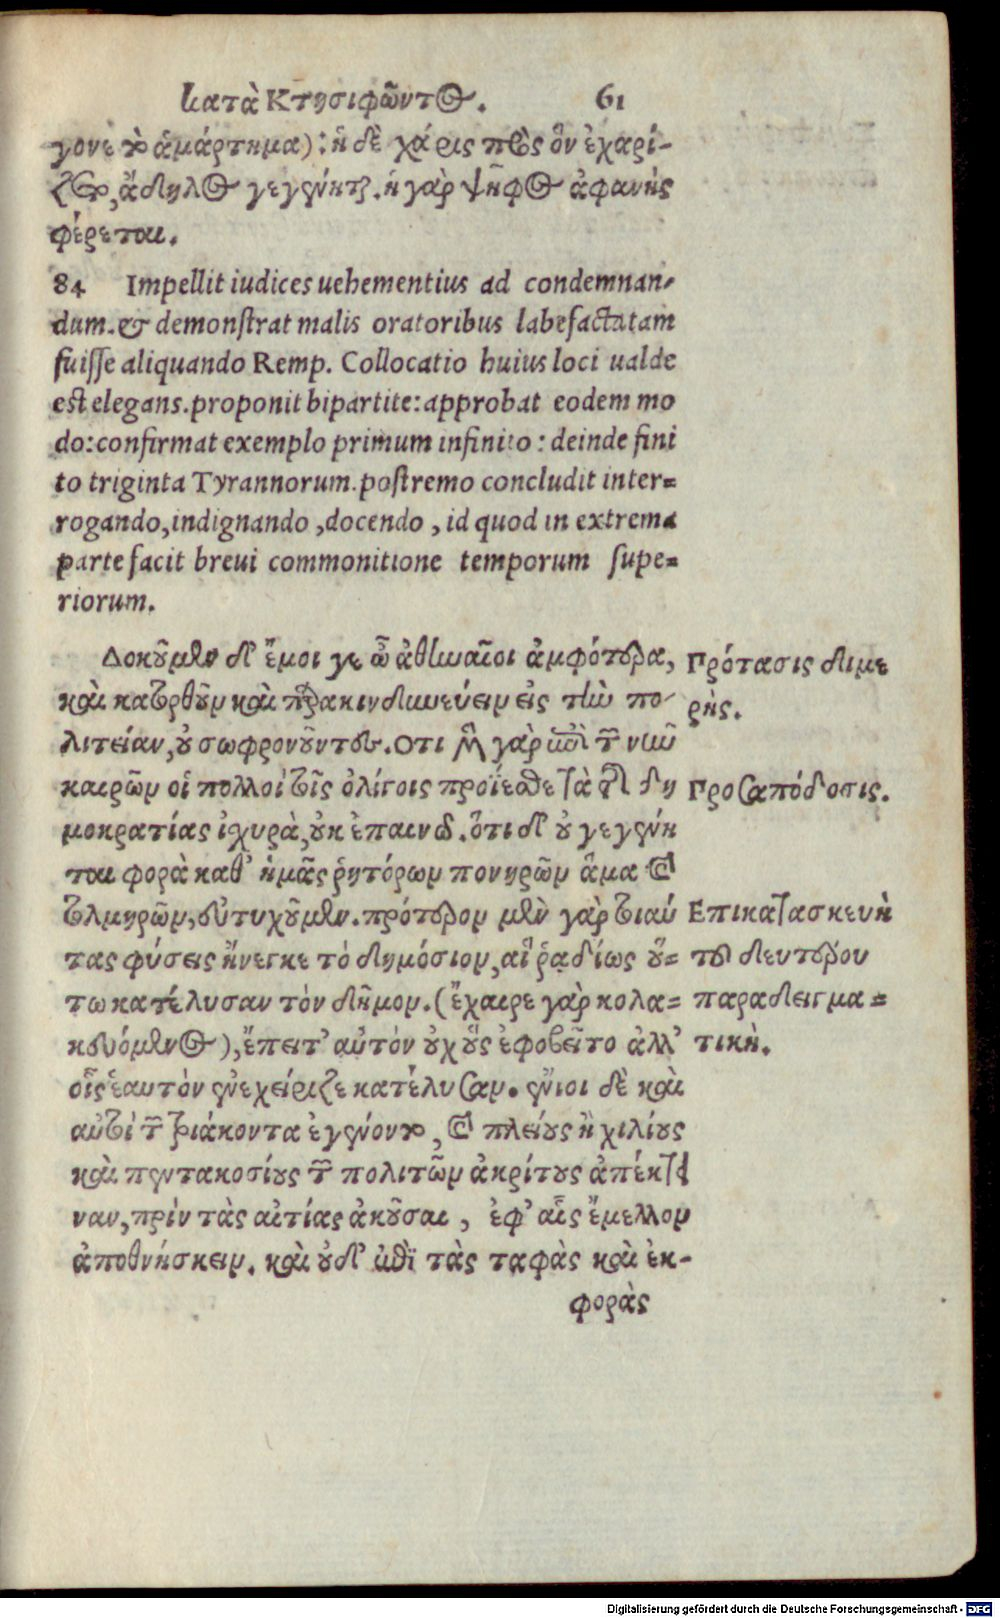 κατὰ Κτησιφῶντος. 61
γονε τὸ ἁμάρτημα): ἡ δὲ χάρις πρὸς ὃν ἐχαρί-
ζετο, ἄδηλος γεγένηται. ἡ γὰρ ψῆφος ἀφανὴς
φέρεται.
84 Impellit iudices uehementius ad condemnan-
dum. & demonſtrat malis oratoribus labefactatam
fuiſſe aliquando Remp. Collocatio huius loci ualde
est elegans. proponit bipartite: approbat eodem mo
do: confirmat exemplo primum infinito: deinde fini
to triginta Tyrannorum. poſtremo concludit inter=
rogando, indignando, docendo, id quod in extrema
parte facit breui commonitione temporum ſupe=
riorum.
Δοκοῦμεν δ' ἔμοι γε ὦ ἀθηναῖοι ἀμφότερα,
καὶ κατορθοῦν καὶ παρακινδυνεύειν εἰς τὴν πο-
λιτείαν, οὐ σωφρονοῦντες. Ὅτι μὲν γὰρ ἐπὶ τῶν νῦν
καιρῶν οἱ πολλοὶ τοῖς ὀλίγοις προΐεσθε τὰ τῆς δη
μοκρατίας ἰσχυρὰ, οὐκ ἐπαινῶ. ὅτι δ' οὐ γεγένη
ται φορὰ καθ' ἡμᾶς ῥητόρων πονηρῶν ἅμα καὶ
τολμηρῶν, εὐτυχοῦμεν. πρότερον μὲν γὰρ τοιαύ
τας φύσεις ἤνεγκε τὸ δημόσιον, αἳ ῥᾳδίως οὕ=
τω κατέλυσαν τὸν δῆμον. (ἔχαιρε γὰρ κολα=
κευόμενος), ἔπειτ' αὐτὸν οὐχ οὓς ἐφοβεῖτο ἀλλ'
οἷς ἑαυτὸν ἐνεχείριζε κατέλυσαν. ἔνιοι δὲ καὶ
αὐτοὶ τῶν τριάκοντα ἐγένοντο, καὶ πλείους ἢ χιλίους
καὶ πεντακοσίους τῶν πολιτῶν ἀκρίτους ἀπέκτει
ναν, πρὶν τὰς αἰτίας ἀκοῦσαι, ἐφ' αἷς ἔμελλον
ἀποθνήσκειν. καὶ οὐδ' ἐπὶ τὰς ταφὰς καὶ ἐκ-
φορὰς
Πρότασις διμε
ρής.
Προσαπόδοσις.
Επικατασκευὴ
τοῦ δευτέρου
παραδειγμα=
τικὴ.
Digitalisierung gefördert durch die Deutsche Forschungsgemeinschaft - DFG